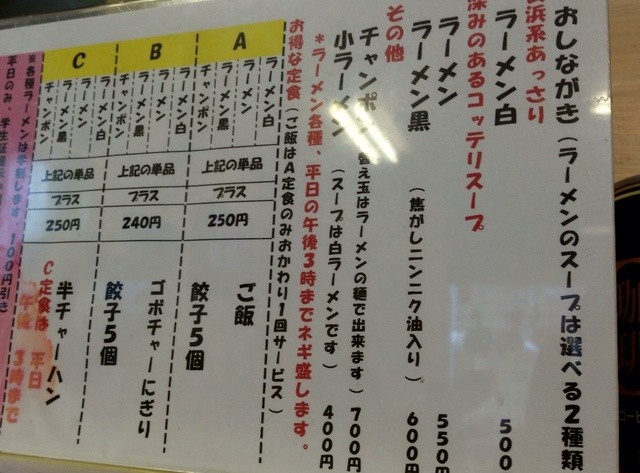 おしながき（ラーメンのスープは選べる2種類
浜系あっさり
ラーメン白 500
深みのあるコッテリスープ
ラーメン 550
ラーメン黒（焦がしニンニク油入り）600
その他
チャンポン 替え玉はラーメンの麺で出来ます）700円
小ラーメン（スープは白ラーメンです）400円
＊ラーメン各種、平日の午後3時までネギ盛します。
お得な定食（ご飯はA定食のみおかわり1回サービス）
A
ラーメン白
ラーメン
ラーメン黒
チャンポン
上記の単品
プラス
250円
ご飯
餃子5個
B
ラーメン白
ラーメン
ラーメン黒
チャンポン
上記の単品
プラス
240円
ゴボチャーにぎり
餃子5個
C
ラーメン白
ラーメン
ラーメン黒
チャンポン
上記の単品
プラス
250円
半チャーハン
C定食は 平日
午後 3時まで
＊各種ラーメンは学割します。100円引き
平日のみ、学生証提示